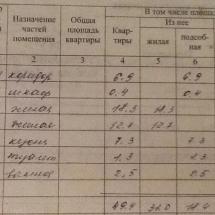 Назначение частей помещения
Общая площадь квартиры
В том числе площа
Из нее
Квар- тиры
жилая
подсоб- ная
2 3 4 5 6
коридор 6.9 6.9
шкаф 0.4 0.4
жилая 18.3 18.3
жилая 12.7 12.7
кухня 7.3 7.3
туалет 1.3 1.3
ванная 2.5 2.5
49.4 31.0 18.4